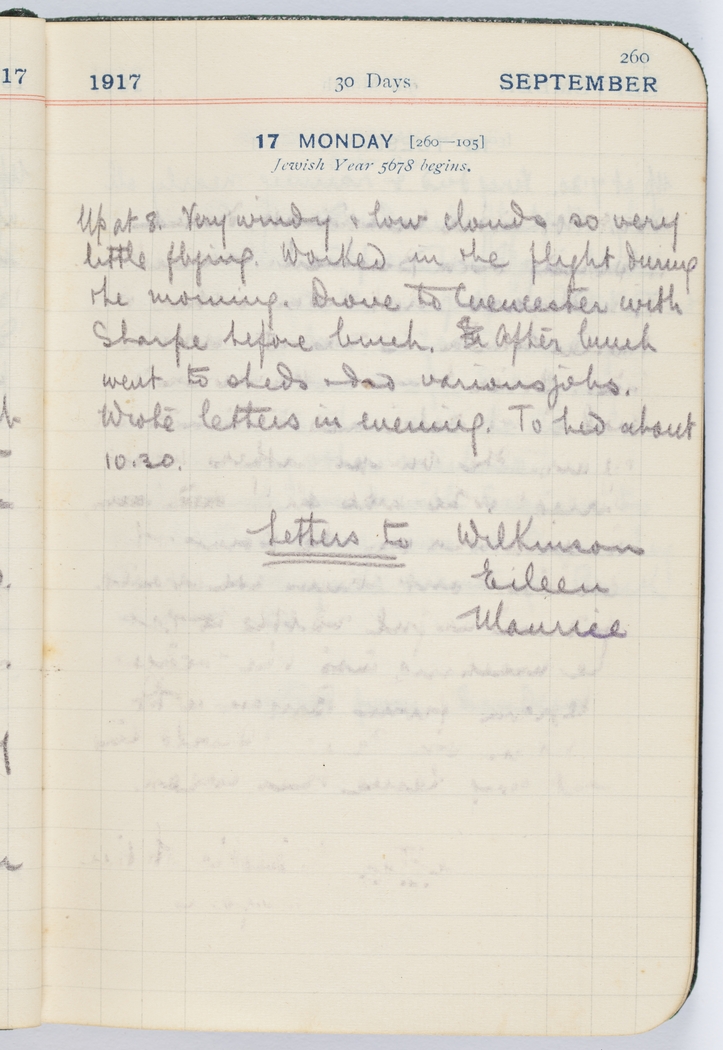 17
260
1917 30 Days SEPTEMBER
17 MONDAY [260—105]
Jewish Year 5678 begins.
Up at 8. Very windy & low clouds so very
little flying. Worked in the flight during
the morning. Drove to Cirencester with
Sharpe before lunch. After lunch
went to sheds & did various jobs.
Wrote letters in evening. To bed about
10.30.
Letters to Wilkinson
Eileen
Maurice